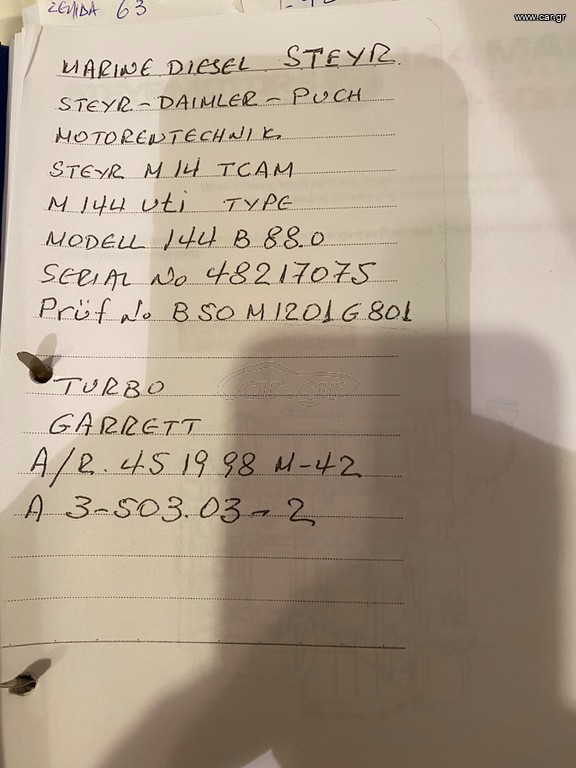 www.car.gr
ΣΕΛΙΔΑ 63
MARINE DIESEL STEYR
STEYR-DAIMLER-PUCH
MOTORENTECHNIK
STEYR M 14 TCAM
M 144 Uti TYPE
MODELL 144 B 88.0
SERIAL No 48217075
Prüf No BSOM1201G801
TURBO
GARRETT
A/R. 45 19 98 M-42
A 3-503.03-2